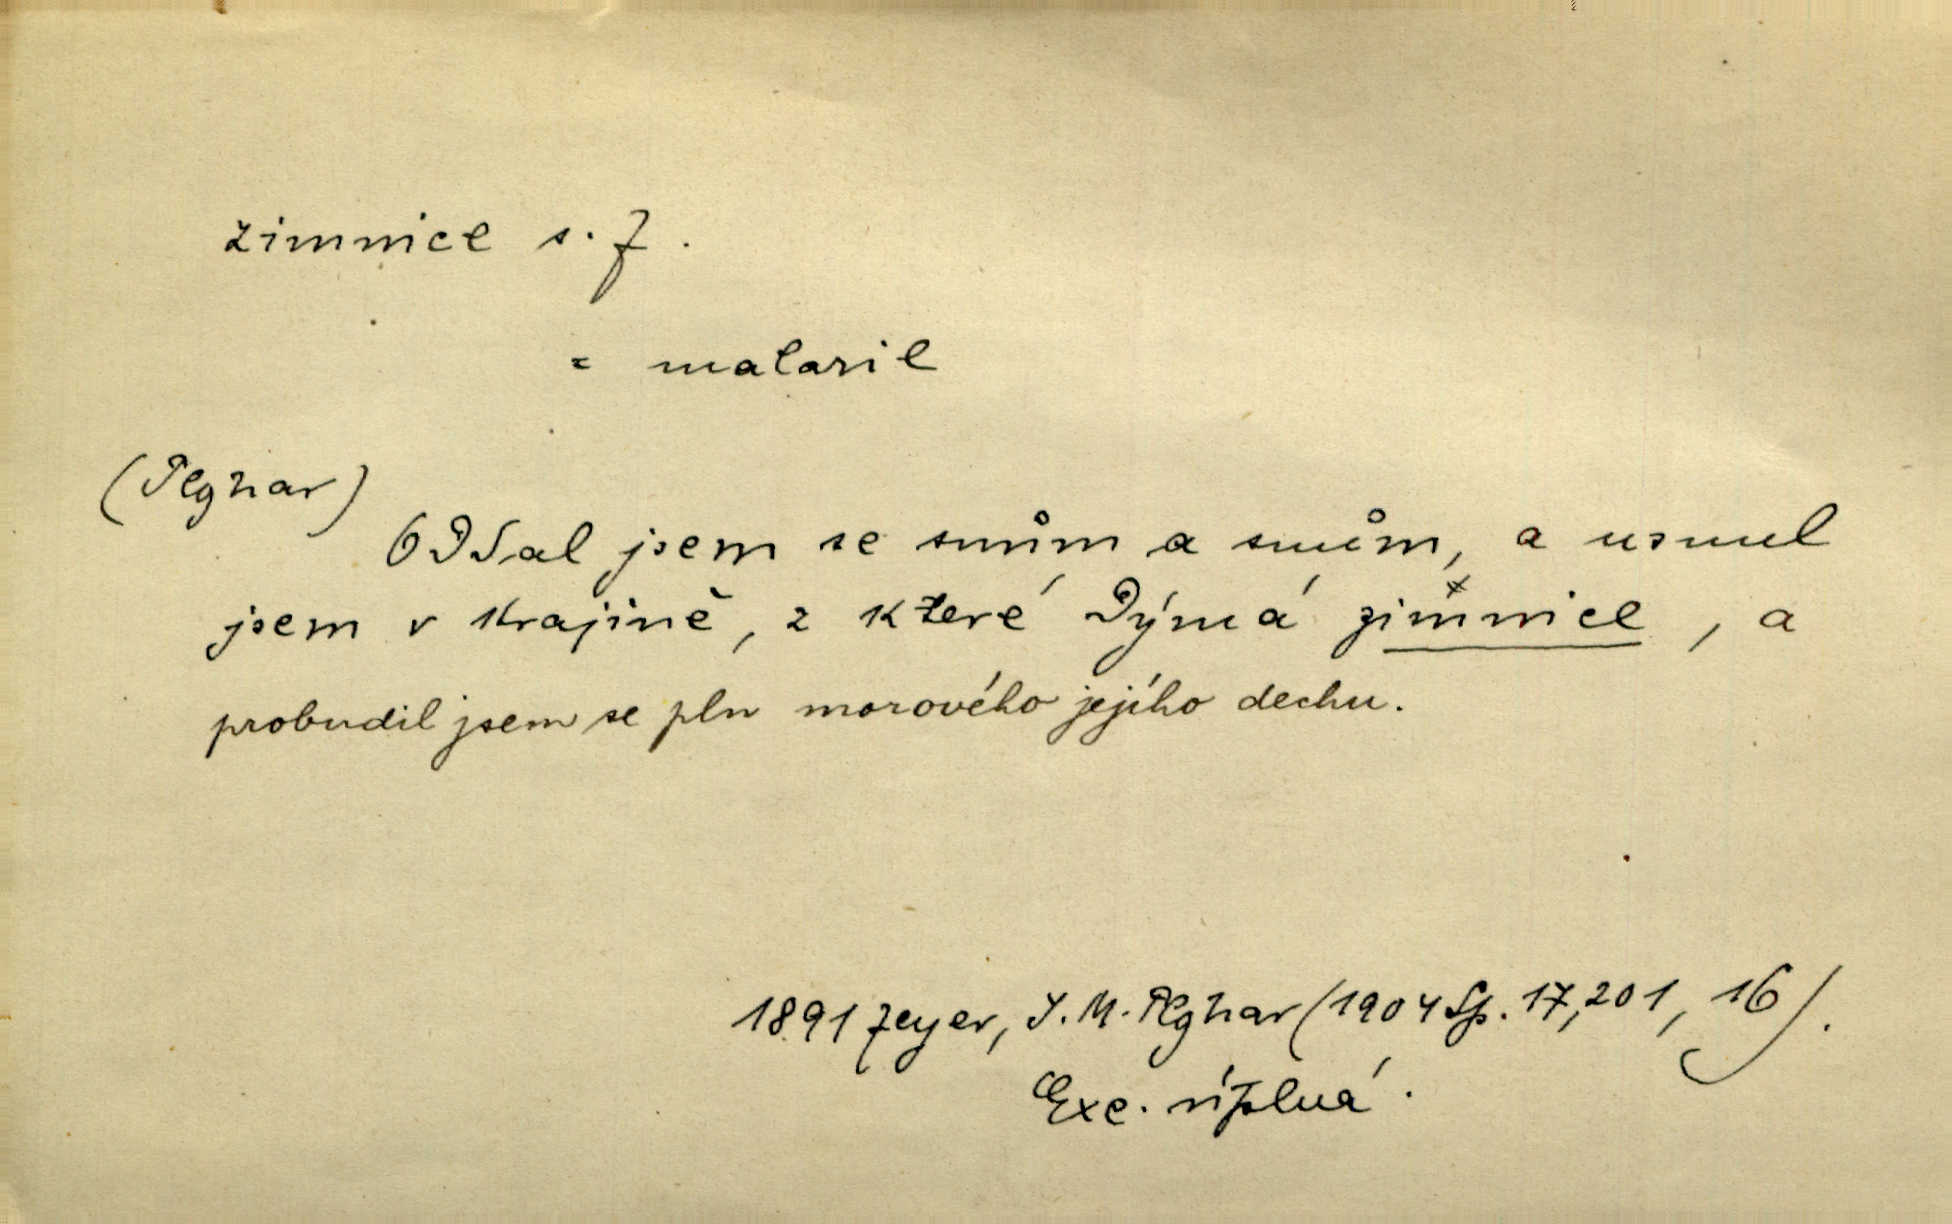 zimnice s. f.
= malarie
(Plojhar)
Oddal jsem se snům a snům, a usnul
jsem v krajině, z které dýmá zimnice, a
probudil jsem se pln morového jejího dechu.
1891 Zeyer, J. M. Plojhar (1904 Sp. 17, 201, 16).
Exc. úplná.